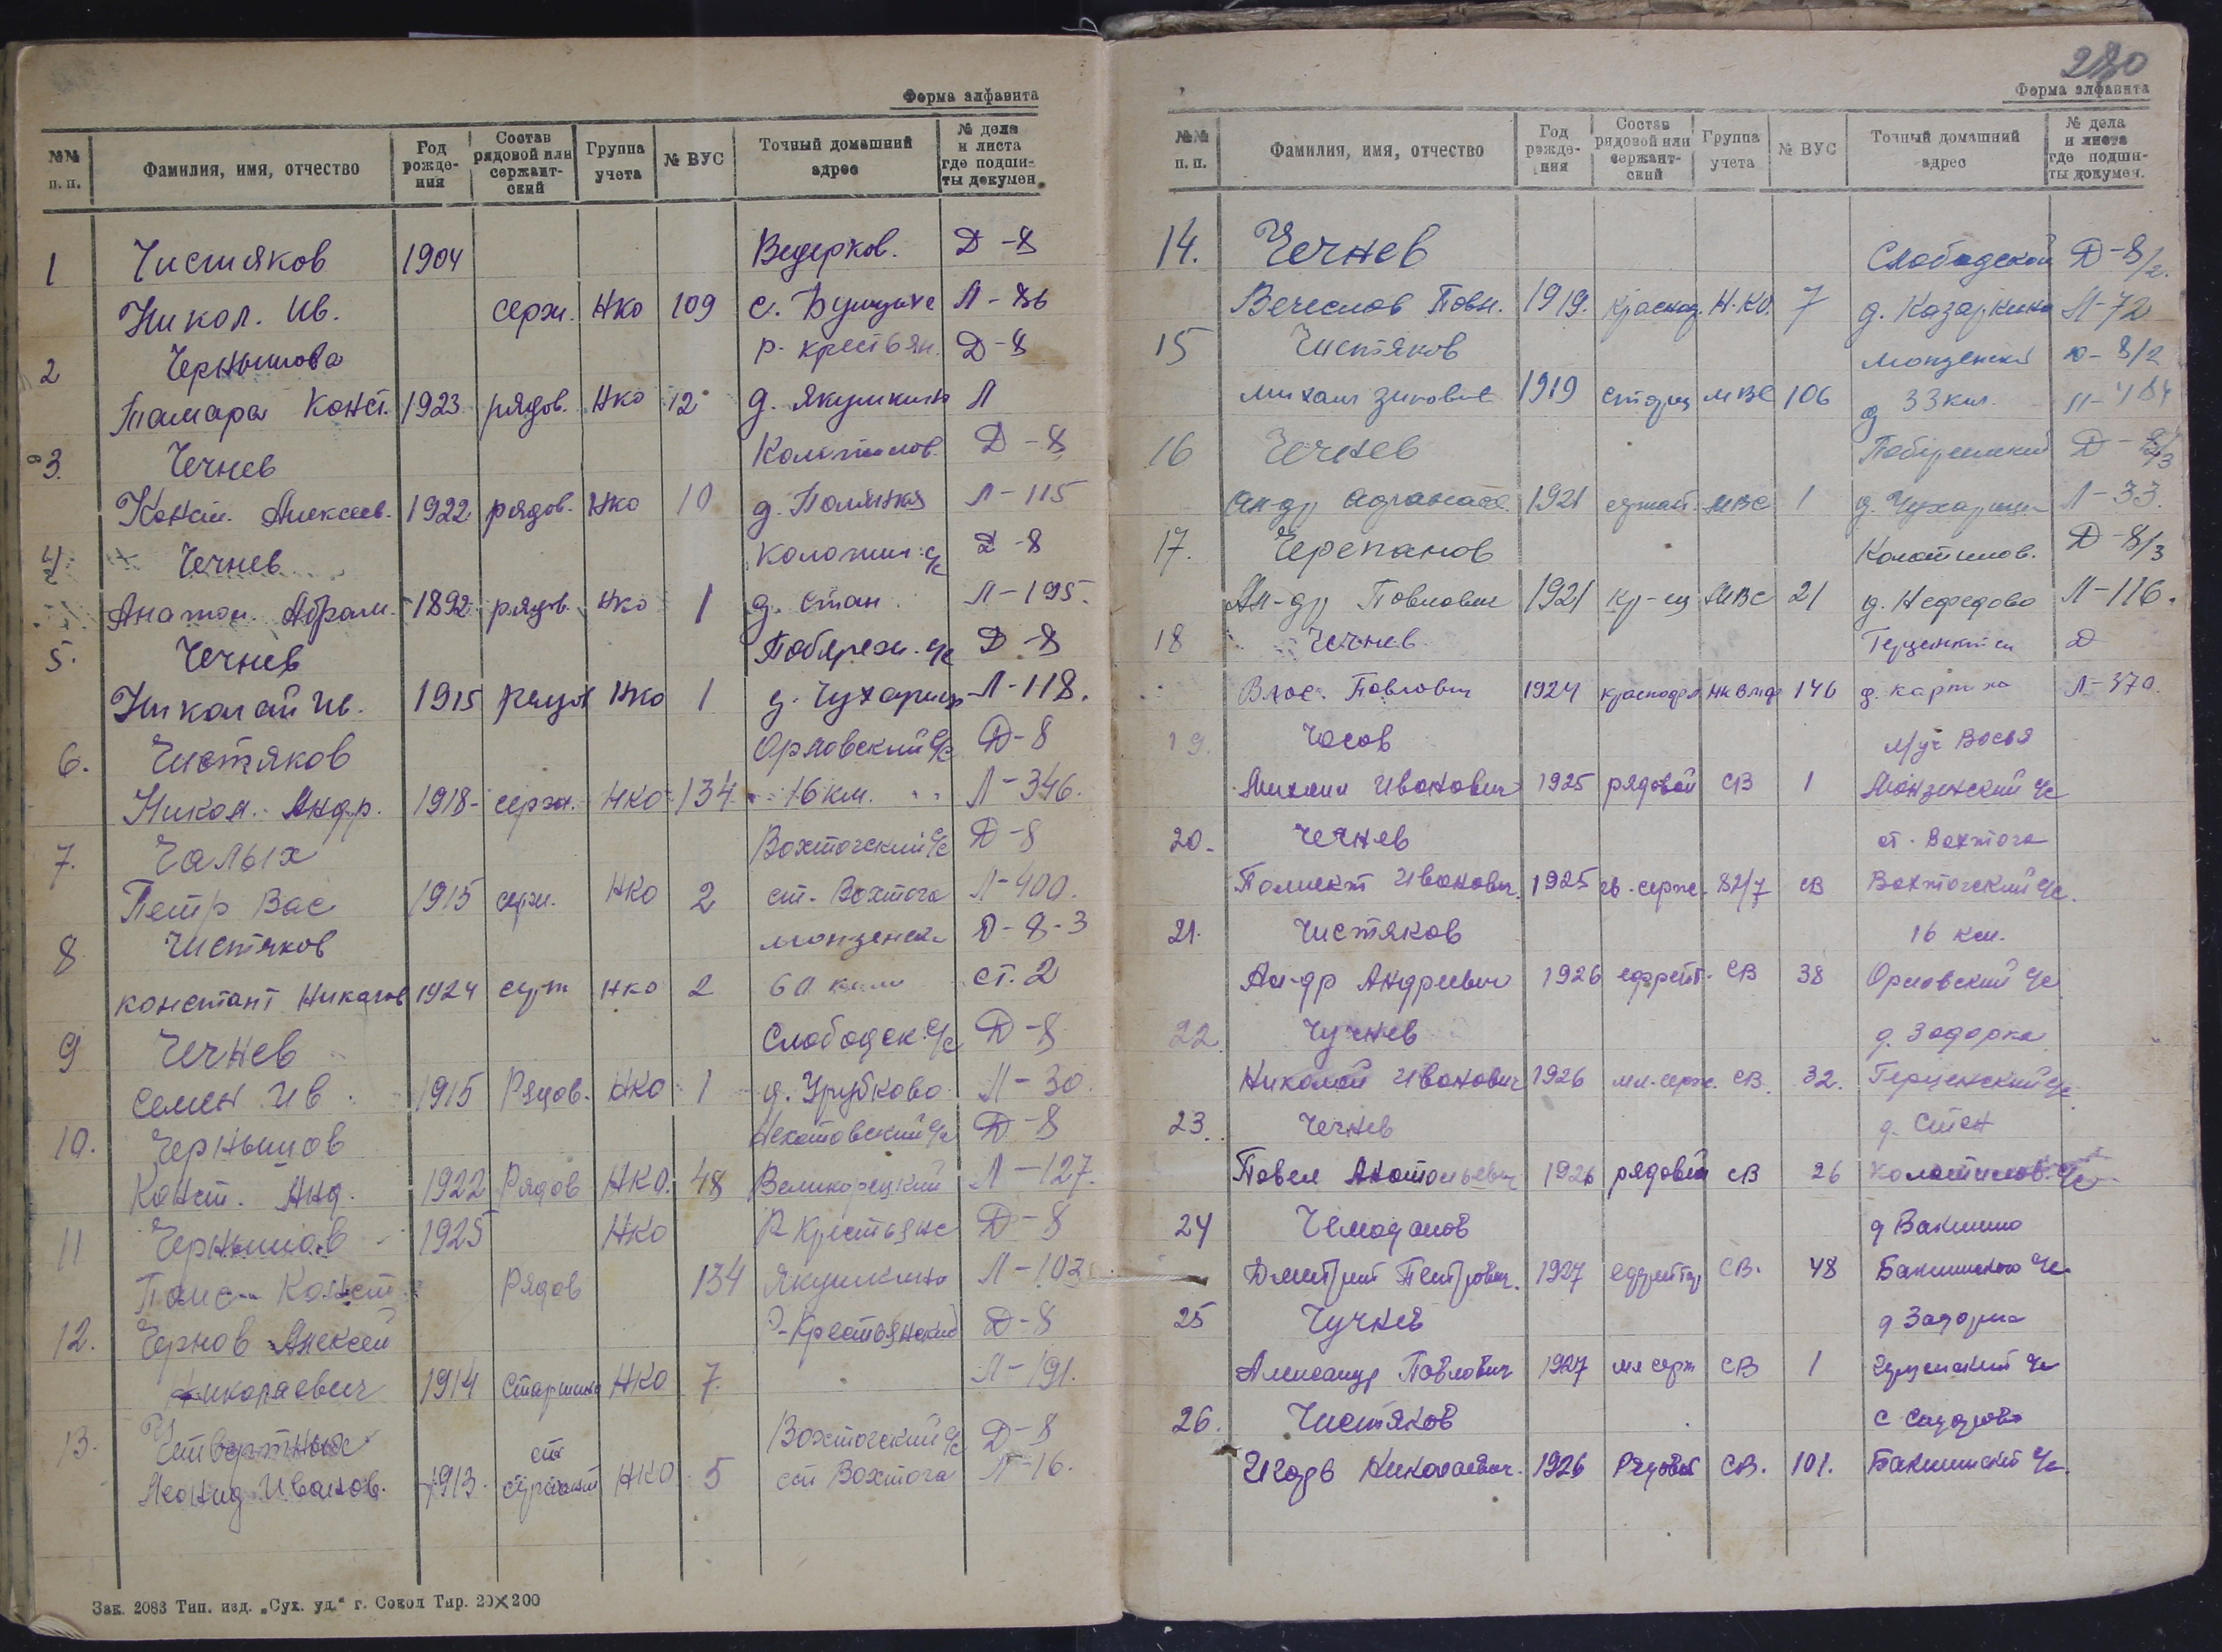 Форма алфавита
№№ п. п. Фамилия, имя, отчество Год рожде- ния Состав рядовой или сержант- ский Группа учета № ВУС Точный домашний адрес № дела и листа где подши- ты докумен.
1 Чистяков 1904 Ведерков. Д-8
Никол. Ив. серж. НКО 109 с. Л-86
2 Чернышова Р-крестьян. Д-8
Тамара Конст. 1923 рядов. НКО 12 д. Якушкино Л
3. Чечнев Колотилов. Д-8
Конст. Алексеев. 1922 рядов. НКО 10 д. Полянка Л-115
4 Чечнев Колотил. с/с Д-8
Анатол. Абрам. 1892 рядов. НКО 1 д. Стан Л-195.
5. Чечнев Побереж. с/с Д-8
Николай Ив. 1915 рядов НКО 1 д. Чухарица Л-118.
6. Чистяков Орловский с/с Д-8
Никол. Андр. 1918 серж. НКО 134 16 км. Л-346.
7. Чалых Вохтогский с/с Д-8
Петр Вас 1915 серж. НКО 2 ст. Вохтога Л-400.
8 Чистяков Монзенск. Д-8-3
Констант 1924 НКО 2 60 ст. 2
9 Чечнев Слободск. с/с Д-8
Семен Ив. 1915 Рядов. НКО 1 д. Л-30.
10. Чернышов с/с Д-8
Конст. Анд. 1922 Рядов НКО. 48 Великорецкий Л-127.
11 Чернышов 1925 НКО Р-Крестьянс Д-8
Конст. Рядов 134 Якушкино Л-103
12. Чернов Алексей Р-Крестьянский Д-8
Николаевич 1914 Старшина НКО 7. Л-191.
13. Вохтогский с/с Д-8
Леонид Иванов. 1913. ст сержант НКО 5 ст Вохтога Л-16.
Зак. 2083 Тип. изд. „Сух. уд.“ г. Сокол Тир. 20×200
280
Форма алфавита
№№ п. п. Фамилия, имя, отчество Год рожде- ния Состав рядовой или сержант- ский Группа учета № ВУС Точный домашний адрес № дела и листа где подши- ты докумен.
14. Чечнев Слободской Д-8/2.
Вечеслов Павл. 1919. Н.КО. 7 д. Казаркино Л-72
15 Чистяков Монзенский 8/2
Михаил 1919 МВС 106 33 км. Л-484
16 Чечнев Побережский Д-8/3
Ал-др 1921 МВС 1 д. Чухарица Л-33.
17. Черепанов Колотилов. Д-8/3
Ал-др Павлович 1921 кр-ец МВС 21 д. Нефедово Л-116.
18 Чечнев Д
Павлович 1924 146 д. Л-370.
19. Часов
Михаил Иванович 1925 рядовой СВ 1 Монзенский с/с
20. Чечнев ст. Вохтога
Полиект Иванович. 1925 серж. 82/7 СВ Вохтогский с/с.
21. Чистяков 16 км.
Ал-др Андреевич 1926 ефрейт. СВ 38 Орловский с/с
22 Чучнев д. Задорка
Николай Иванович 1926 мл. серж. СВ. 32. Герценский с/с
23. Чечнев д. Стан
Павел Анатольевич 1926 рядовой СВ 26 Колотилов. с/с
24 Чемоданов д Вакшино
Дмитрий Петрович. 1927 СВ. 48 с/с
25 Чучнев д Задорка
Александр Павлович 1927 мл серж СВ 1 Герценский с/с
26. Чистяков с Сидорово
Игорь Николаевич. 1926 Рядовой СВ. 101. Бакшинский с/с.